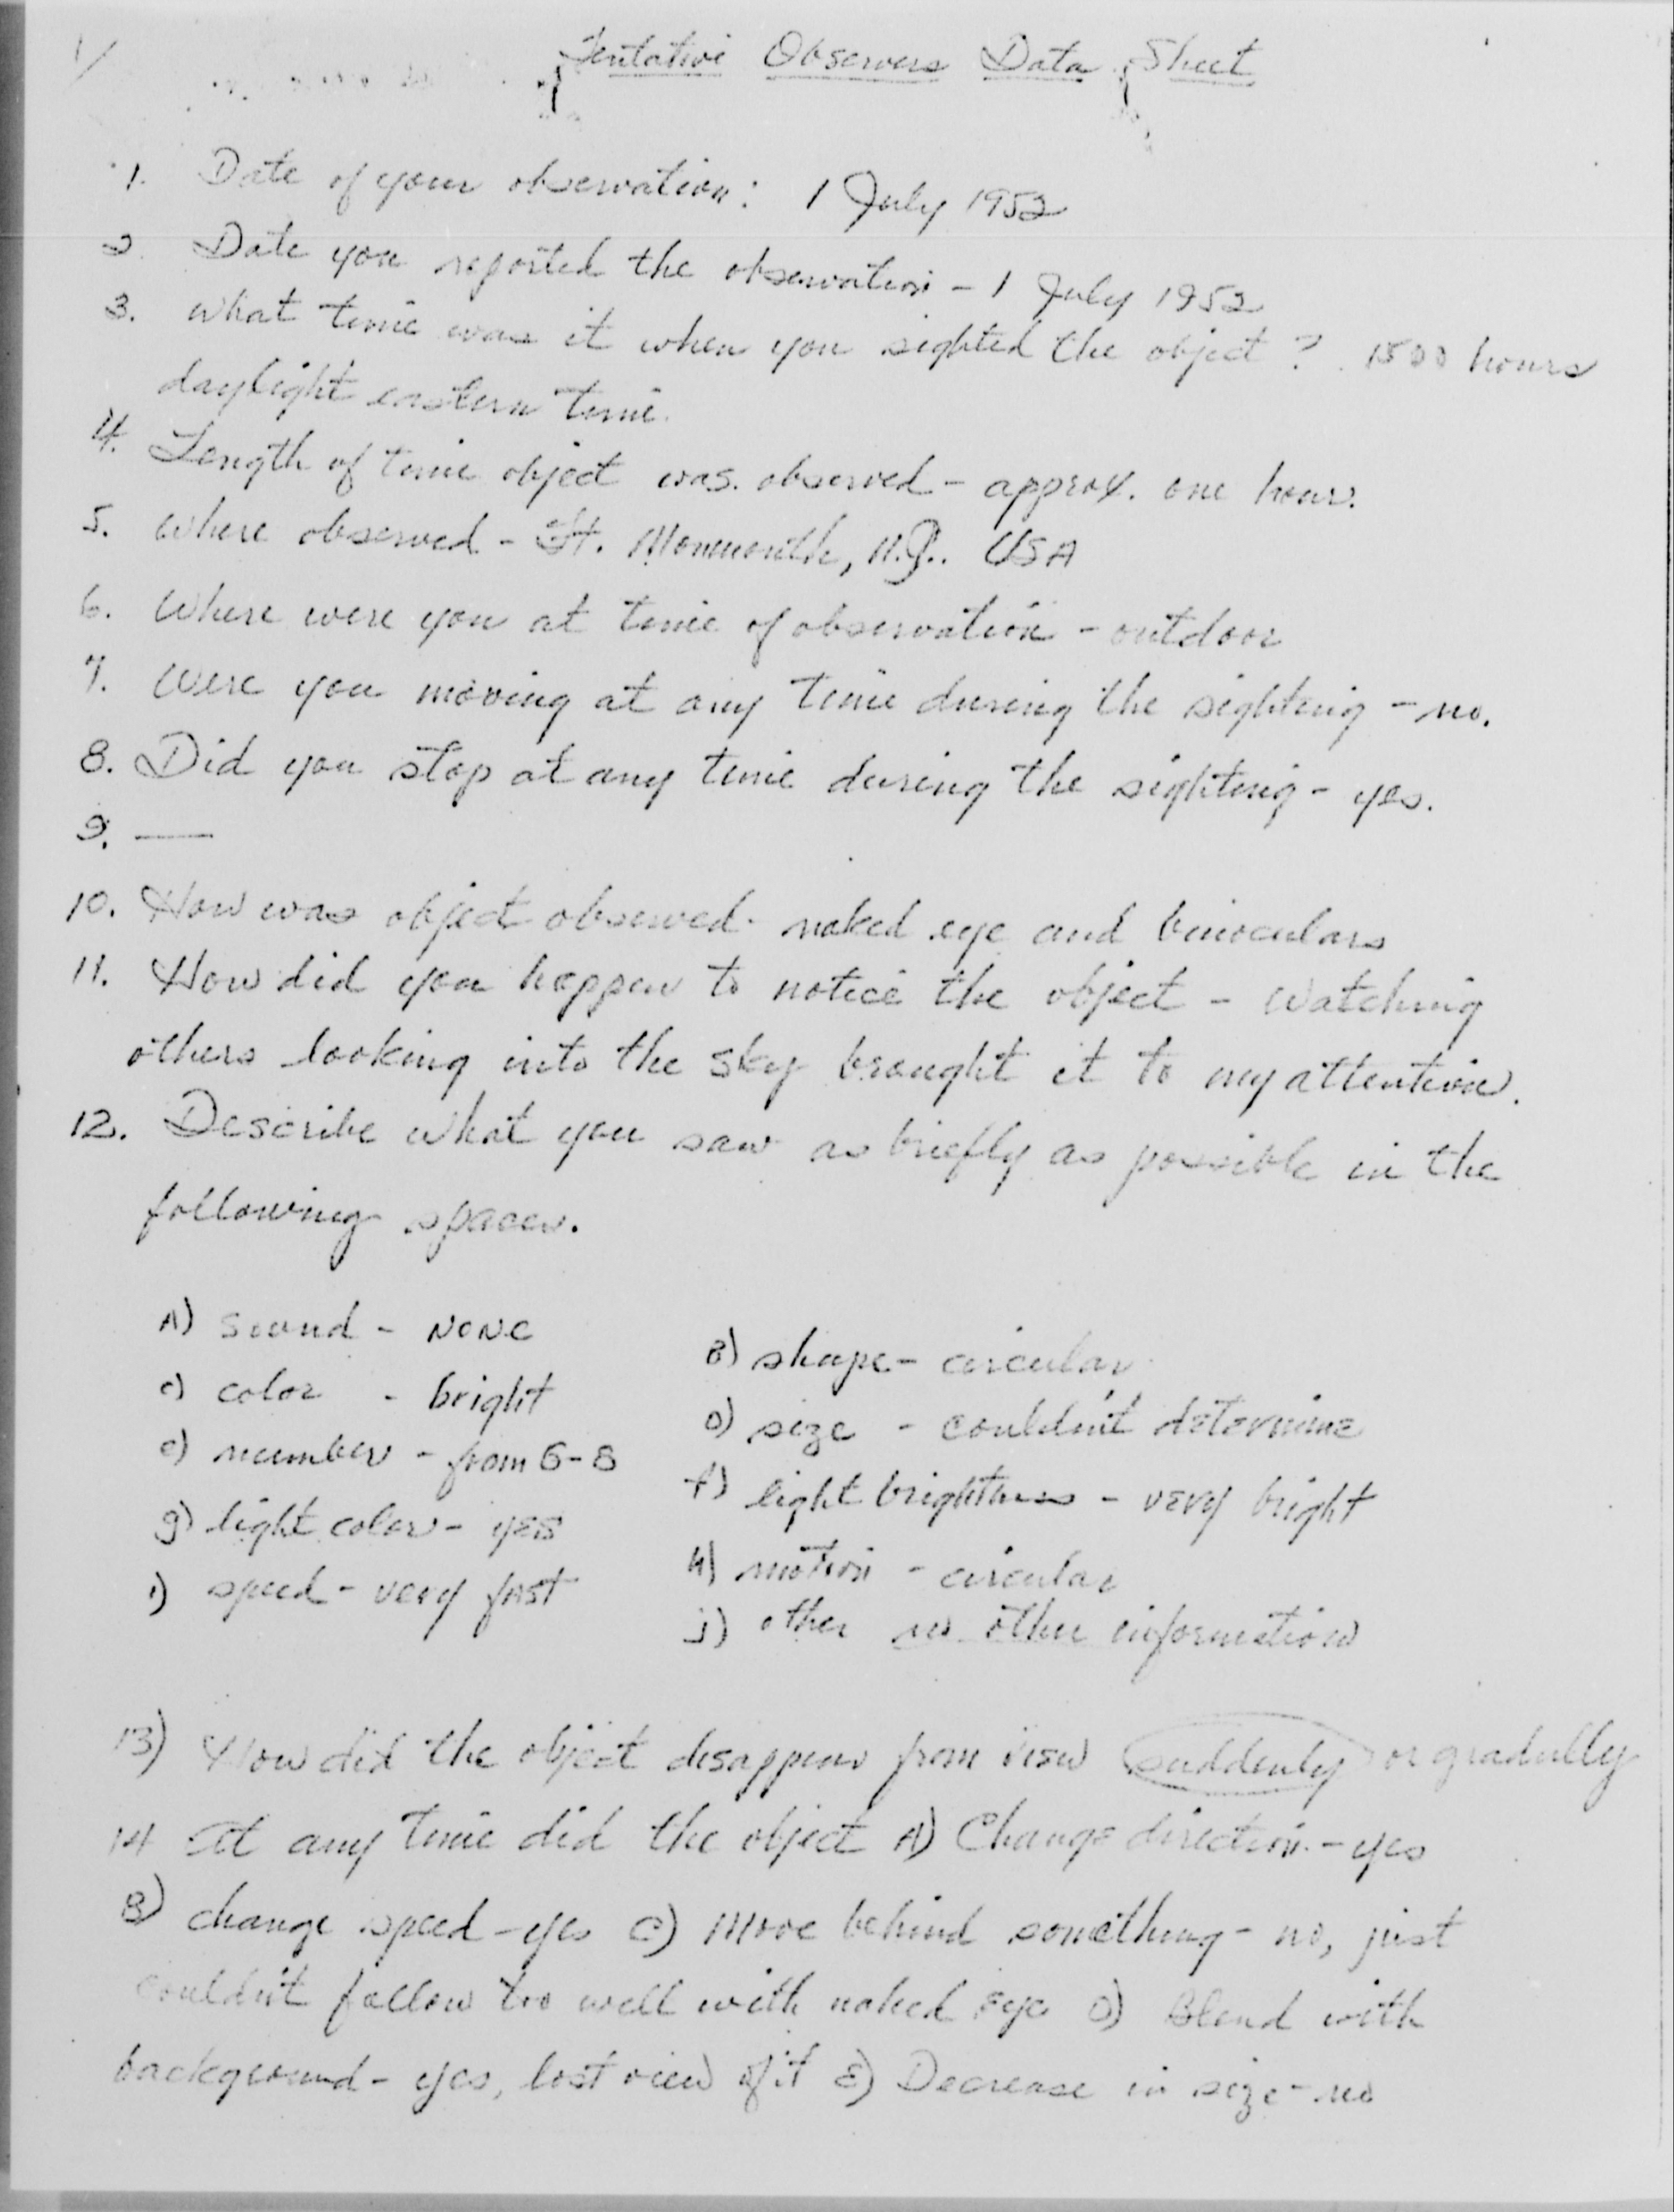 1/
Tentative Observers Data Sheet
1. Date of your observation: 1 July 1952
2. Date you reported the observation - 1 July 1952
3. What time was it when you sighted the object? 1500 hours
daylight eastern time.
4. Length of time object was observed - approx. one hour.
5. Where observed - Ft. Monmouth, N.J. USA
6. Where were you at time of observation - outdoor
7. Were you moving at any time during the sighting - no.
8. Did you stop at any time during the sighting - yes.
9. —
10. How was object observed - naked eye and binoculars
11. How did you happen to notice the object - Watching
others looking into the sky brought it to my attention.
12. Describe what you saw as briefly as possible in the
following spaces.
A) sound - NONE
B) shape - circular
c) color - bright
D) size - couldn't determine
e) number - from 6-8
f) light brightness - very bright
g) light color - yes
H) motion - circular
i) speed - very fast
j) other no other information
13) How did the object disappear from view suddenly or gradually
14 At any time did the object A) Change direction - yes
B) change speed - yes C) Move behind something - no, just
couldn't follow too well with naked eye D) Blend with
background - yes, lost view of it E) Decrease in size - no